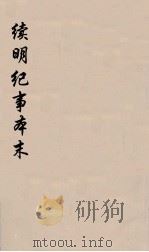 续明纪事本末
mtoou.info